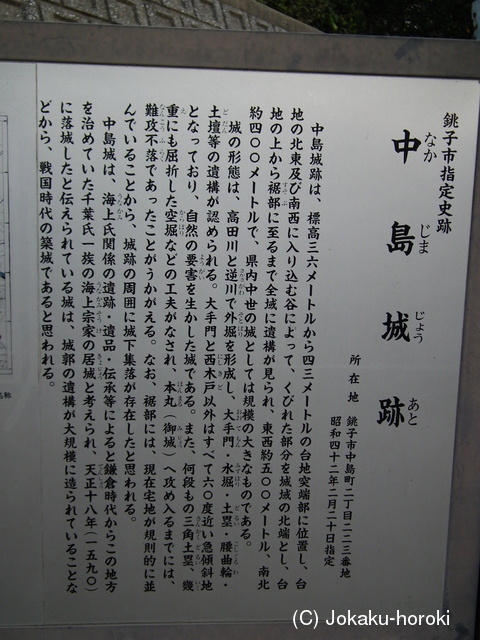 銚子市指定史跡
中島城跡
なか じま じょう あと
所在地 銚子市中島町二丁目二二三番地
昭和四十二年二月二十日指定
中島城跡は、標高三六メートルから四三メートルの台地突端部に位置し、台
地の北東及び南西に入り込む谷によって、くびれた部分を城域の北端とし、台
地の上から裾部に至るまで全域に遺構が見られ、東西約五〇〇メートル、南北
約四〇〇メートルで、県内中世の城としては規模の大きなものである。
城の形態は、高田川と逆川で外堀を形成し、大手門・水堀・土塁・腰曲輪・
土壇等の遺構が認められる。大手門と西木戸以外はすべて六〇度近い急傾斜地
となっており、自然の要害を生かした城である。また、何段もの三角土塁、幾
重にも屈折した空堀などの工夫がなされ、本丸（御城）へ攻め入るまでには、
難攻不落であったことがうかがえる。なお、裾部には、現在宅地が規則的に並
んでいることから、城跡の周囲に城下集落が存在したと思われる。
中島城は、海上氏関係の遺跡・遺品・伝承等によると鎌倉時代からこの地方
を治めていた千葉氏一族の海上宗家の居城と考えられ、天正十八年（一五九〇）
に落城したと伝えられている城は、城郭の遺構が大規模に造られていることな
どから、戦国時代の築城であると思われる。
(C) Jokaku-horoki